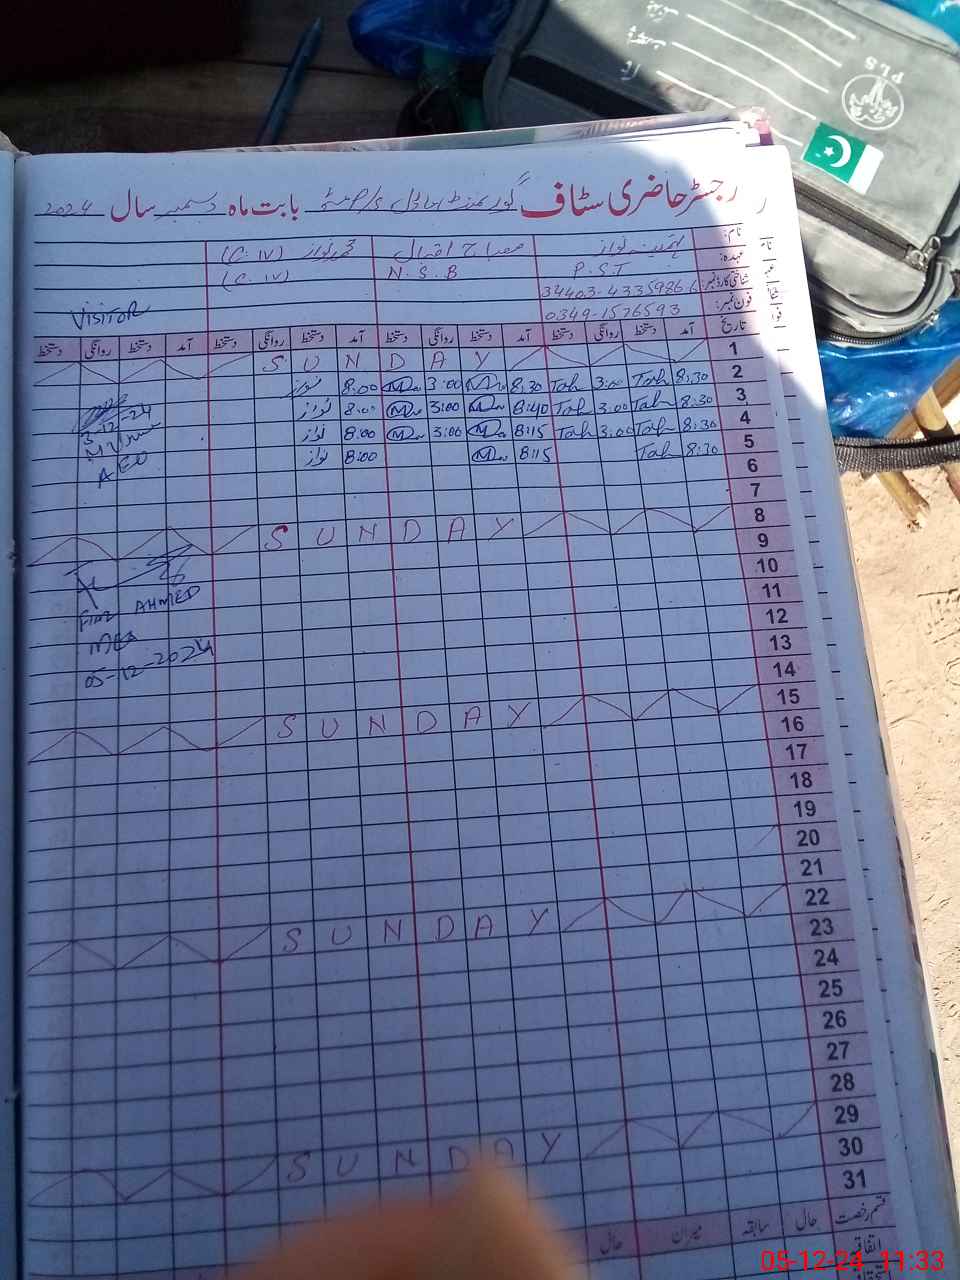 رجسٹر حاضری سٹاف گورنمنٹ ماڈل بابت ماہ دسمبر سال 2024
نام: نواز مصباح اقبال محمد نواز (C.IV)
عہدہ: P.S.T N.S.B (C.IV)
شناختی کارڈ نمبر: 34403-4335986
فون نمبر: 0349-1576593
VISITOR
تاریخ آمد دستخط روانگی دستخط آمد دستخط روانگی دستخط آمد دستخط روانگی دستخط آمد دستخط روانگی دستخط
1 SUNDAY
2 8:30 Tah 3:00 Tah 8:30 3:00 8:00 نواز
3 8:30 Tah 3:00 Tah 8:40 3:00 8:00 نواز
4 8:30 Tah 3:00 Tah 8:15 3:00 8:00 نواز
5 8:30 Tah 8:15 8:00 نواز
3-12-24
AEO
6
7
8 SUNDAY
9
10
11
AHMED
12
13
05-12-2024
14
15 SUNDAY
16
17
18
19
20
21
22 SUNDAY
23
24
25
26
27
28
29 SUNDAY
30
31
قسم رخصت حال سابقہ میزان حال
اتفاقیہ
PLS
05-12-24 11:33